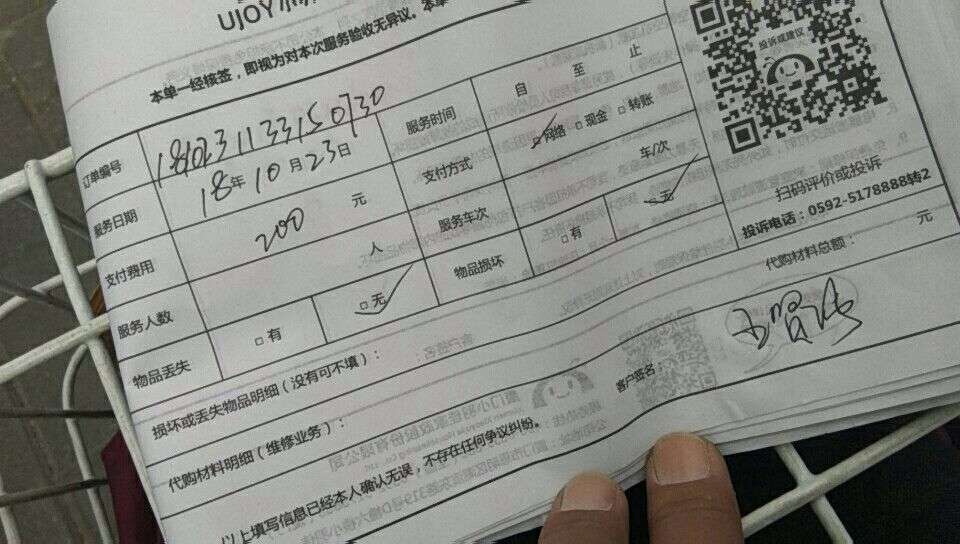 UJOY小羽
本单一经核签，即视为对本次服务验收无异议。本单
订单编号 服务时间 自 至 止
服务日期 18年10月23日 支付方式 ☑网络 □现金 □转账
支付费用 200 元 服务车次 车/次
服务人数 人 物品损坏 □有 ☑无
物品丢失 □有 ☑无
投诉或建议
扫码评价或投诉
投诉电话：0592-5178888转2
损坏或丢失物品明细（没有可不填）：
代购材料明细（维修业务）： 代购材料总额： 元
以上填写信息已经本人确认无误，不存在任何争议纠纷。 客户签名：